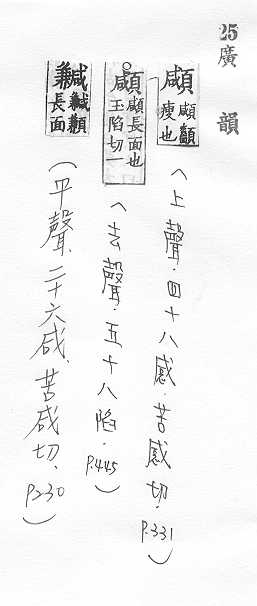 25廣韻
顑 顑顲瘦也
(上聲.四十八感.苦感切.P.331)
顑 顑長面也玉陷切一
(去聲.五十八陷.P.445)
長面
(平聲.二十六咸.苦咸切.P.230)